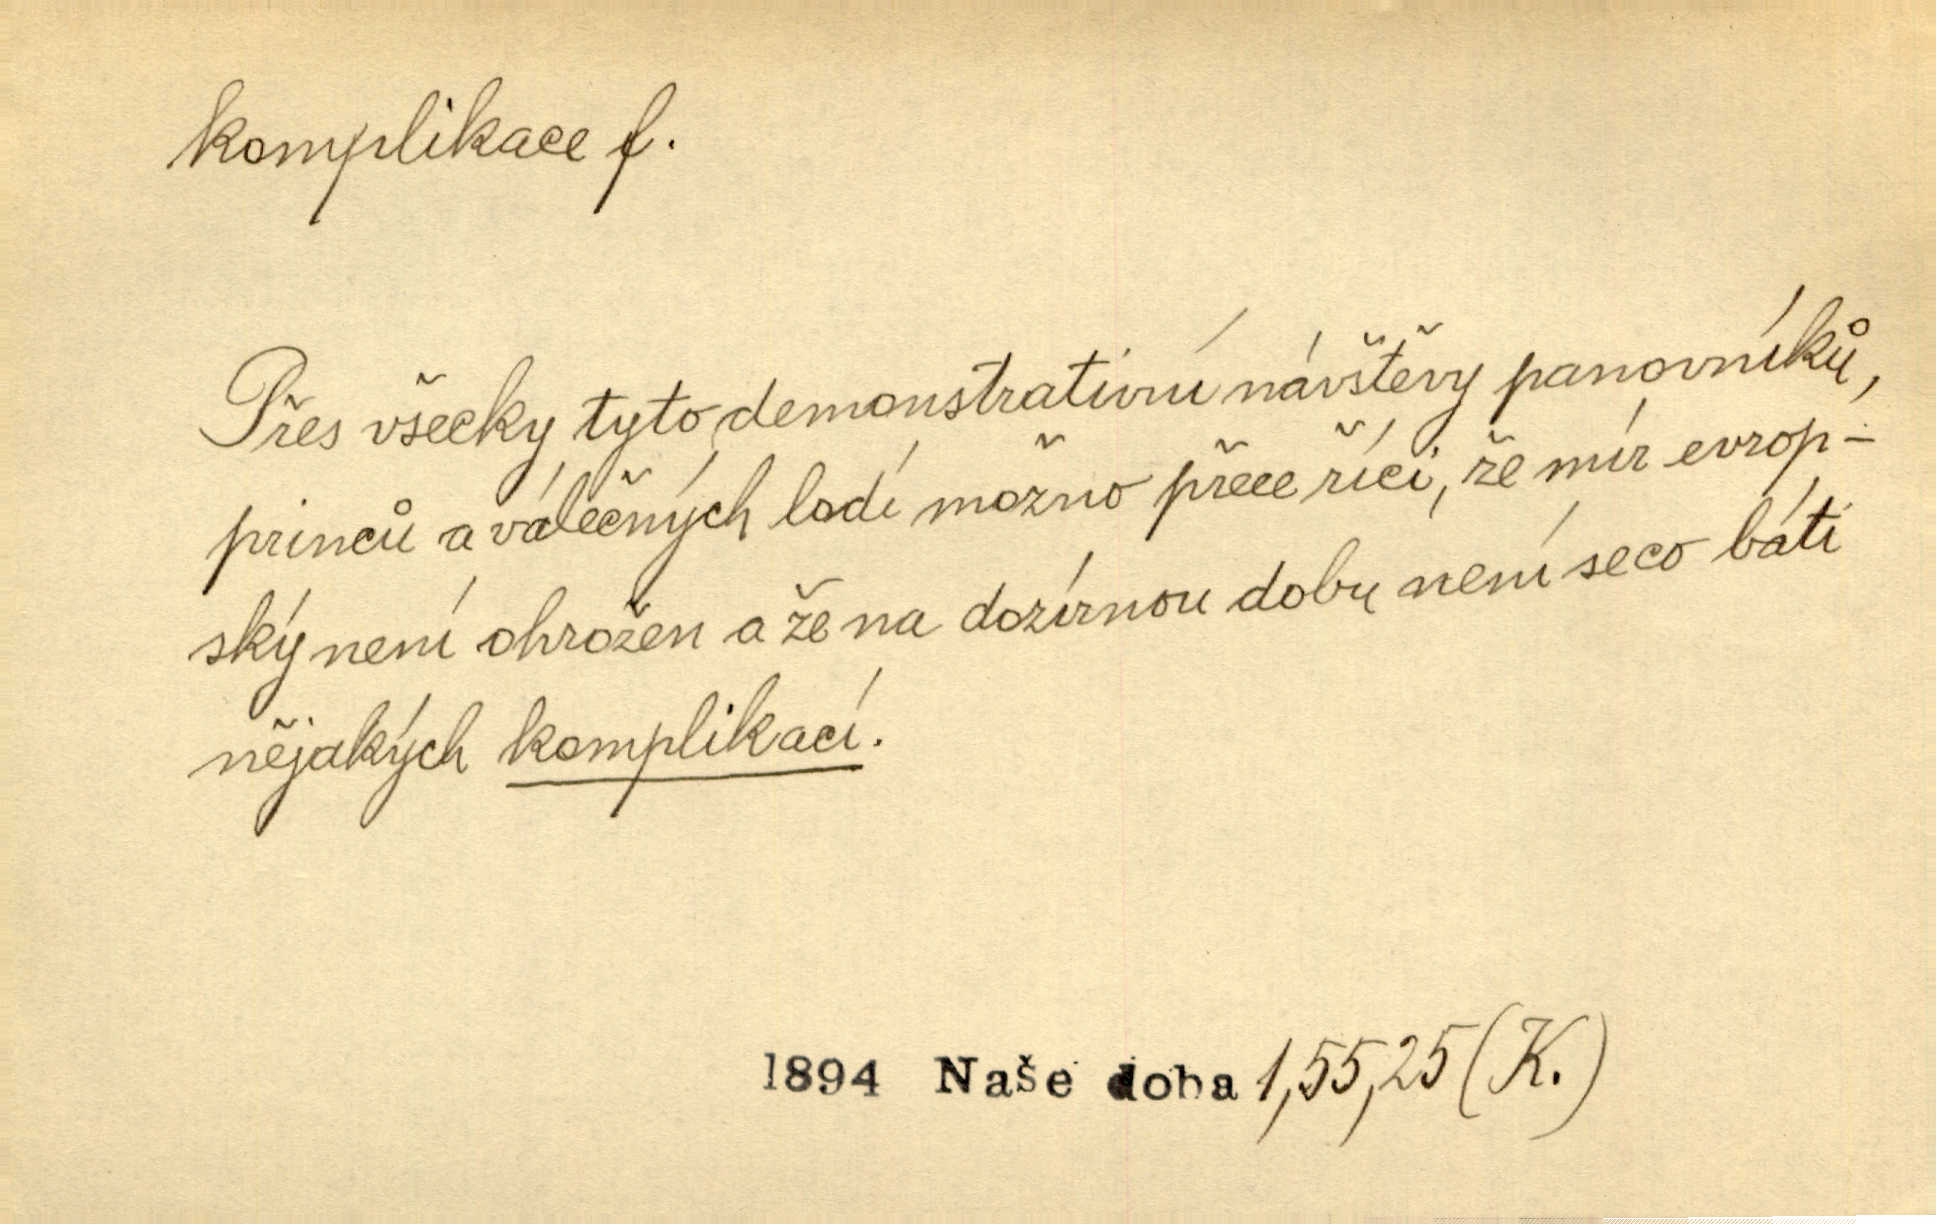 komplikace f.
Přes všecky tyto demonstrativní návštěvy panovníků,
princů a válečných lodí možno přece říci, že mír evrop-
ský není ohrožen a že na dozírnou dobu není se co báti
nějakých komplikací.
1894 Naše doba 1,55,25 (K.)